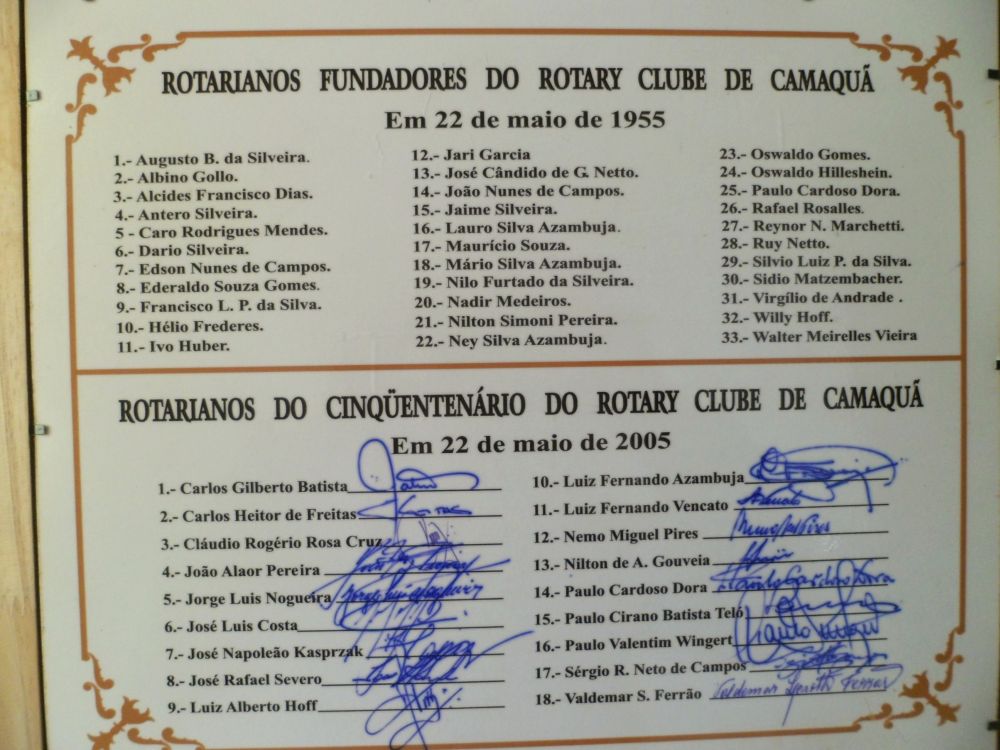 ROTARIANOS FUNDADORES DO ROTARY CLUBE DE CAMAQUÃ
Em 22 de maio de 1955
1.- Augusto B. da Silveira.
2.- Albino Gollo.
3.- Alcides Francisco Dias.
4.- Antero Silveira.
5 - Caro Rodrigues Mendes.
6.- Dario Silveira.
7.- Edson Nunes de Campos.
8.- Ederaldo Souza Gomes.
9.- Francisco L. P. da Silva.
10.- Hélio Frederes.
11.- Ivo Huber.
12.- Jari Garcia
13.- José Cândido de G. Netto.
14.- João Nunes de Campos.
15.- Jaime Silveira.
16.- Lauro Silva Azambuja.
17.- Maurício Souza.
18.- Mário Silva Azambuja.
19.- Nilo Furtado da Silveira.
20.- Nadir Medeiros.
21.- Nilton Simoni Pereira.
22.- Ney Silva Azambuja.
23.- Oswaldo Gomes.
24.- Oswaldo Hilleshein.
25.- Paulo Cardoso Dora.
26.- Rafael Rosalles.
27.- Reynor N. Marchetti.
28.- Ruy Netto.
29.- Silvio Luiz P. da Silva.
30.- Sidio Matzembacher.
31.- Virgílio de Andrade .
32.- Willy Hoff.
33.- Walter Meirelles Vieira
ROTARIANOS DO CINQÜENTENÁRIO DO ROTARY CLUBE DE CAMAQUÃ
Em 22 de maio de 2005
1.- Carlos Gilberto Batista
2.- Carlos Heitor de Freitas
3.- Cláudio Rogério Rosa Cruz
4.- João Alaor Pereira
5.- Jorge Luis Nogueira
6.- José Luis Costa
7.- José Napoleão Kasprzak
8.- José Rafael Severo
9.- Luiz Alberto Hoff
10.- Luiz Fernando Azambuja
11.- Luiz Fernando Vencato
12.- Nemo Miguel Pires
13.- Nilton de A. Gouveia
14.- Paulo Cardoso Dora Paulo Cardoso Dora
15.- Paulo Cirano Batista Teló
16.- Paulo Valentim Wingert
17.- Sérgio R. Neto de Campos
18.- Valdemar S. Ferrão Valdemar